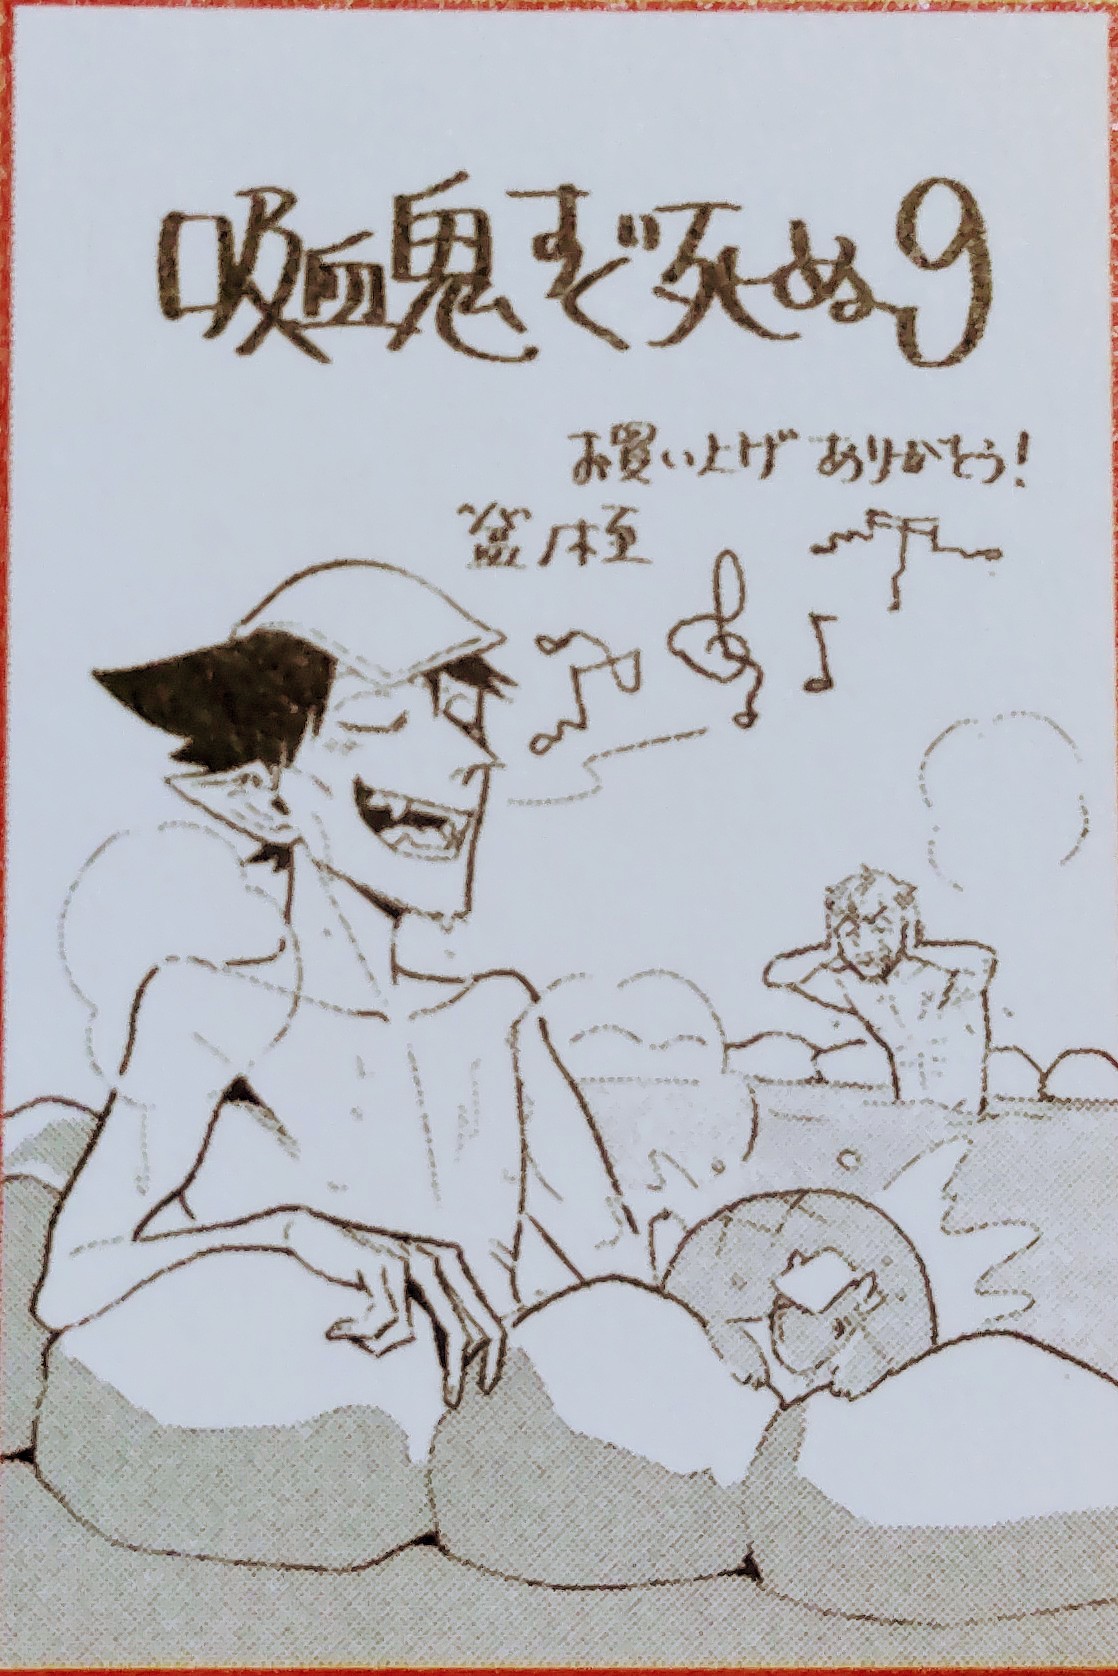 吸血鬼すぐ死ぬ9
お買い上げ ありがとう!
盆ノ木至